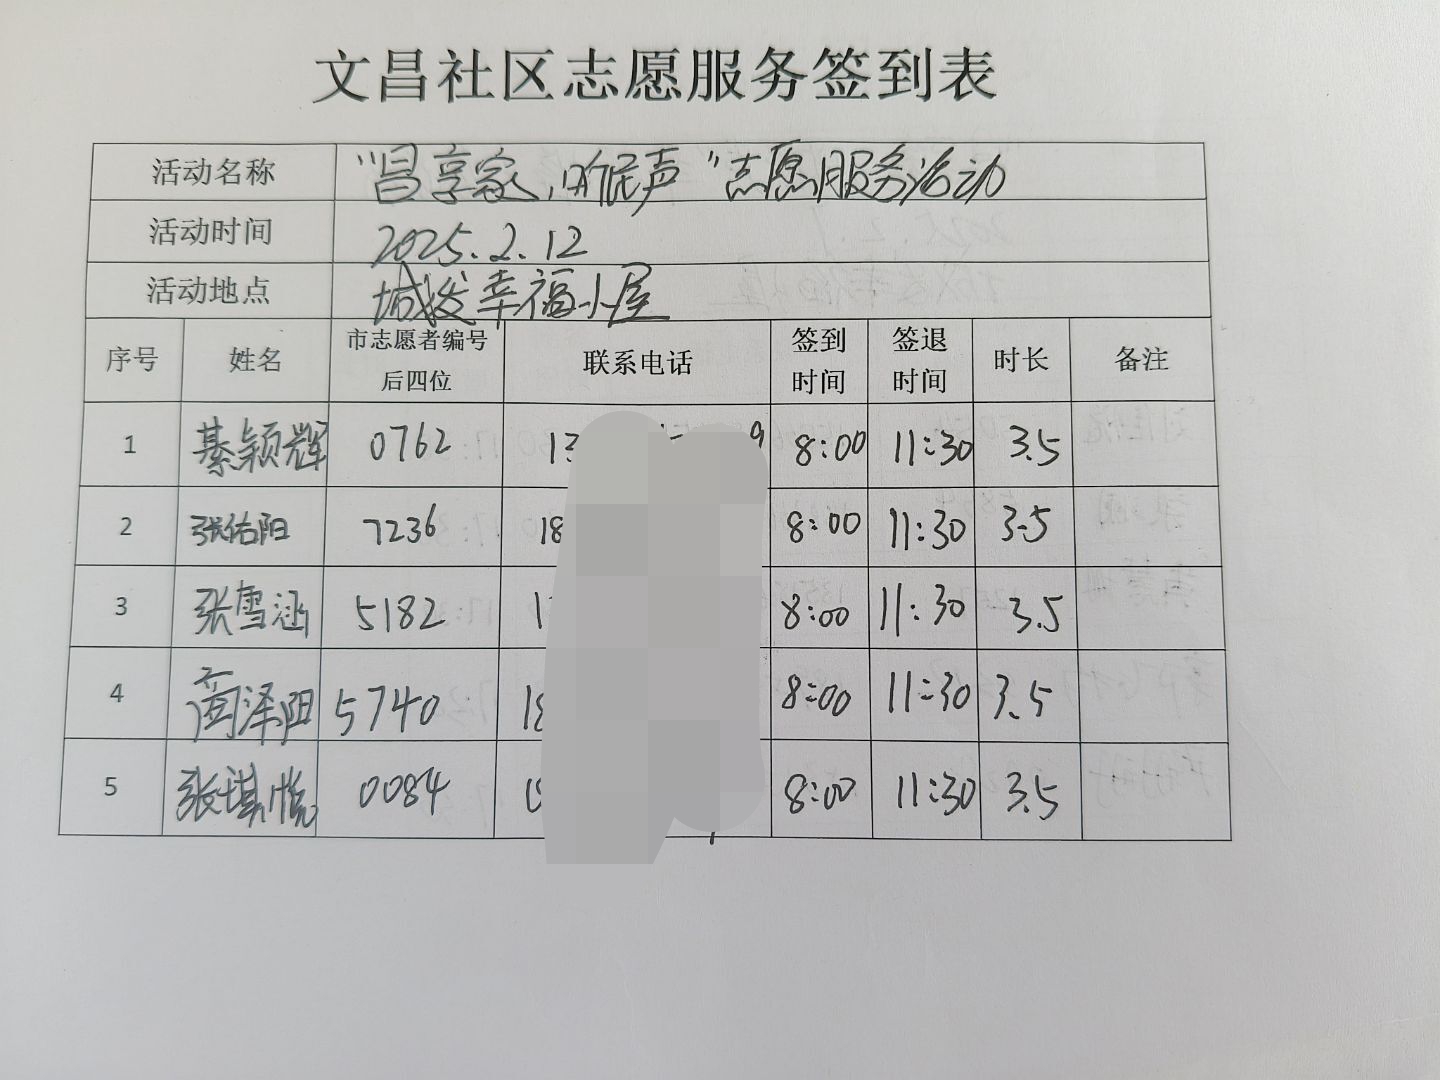 文昌社区志愿服务签到表
活动名称 "昌享家,听民声"志愿服务活动
活动时间 2025.2.12
活动地点 城发幸福小屋
序号 姓名 市志愿者编号后四位 联系电话 签到时间 签退时间 时长 备注
1 綦颖辉 0762 13 9 8:00 11:30 3.5
2 张佑阳 7236 18 8:00 11:30 3.5
3 张雪涵 5182 1 8:00 11:30 3.5
4 泽阳 5740 18 8:00 11:30 3.5
5 张琪悦 0084 8:00 11:30 3.5